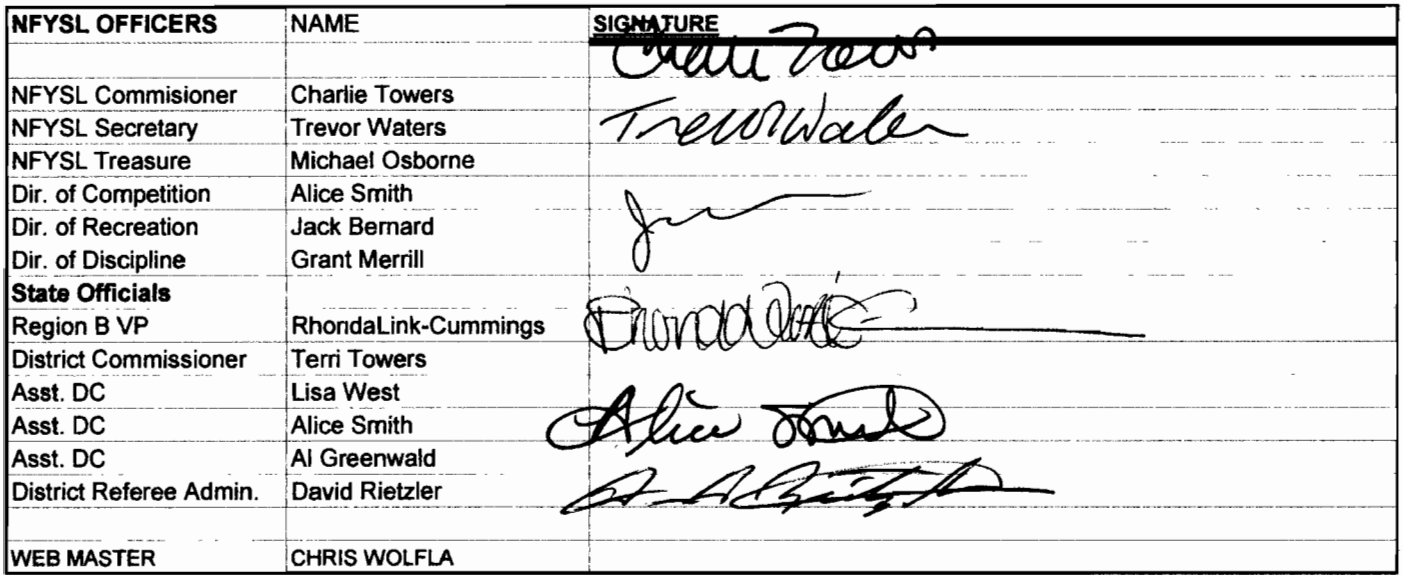 NFYSL OFFICERS NAME SIGNATURE
NFYSL Commisioner Charlie Towers
NFYSL Secretary Trevor Waters Trevor Waters
NFYSL Treasure Michael Osborne
Dir. of Competition Alice Smith
Dir. of Recreation Jack Bernard
Dir. of Discipline Grant Merrill
State Officials
Region B VP RhondaLink-Cummings
District Commissioner Terri Towers
Asst. DC Lisa West
Asst. DC Alice Smith Alice Smith
Asst. DC Al Greenwald
District Referee Admin. David Rietzler
WEB MASTER CHRIS WOLFLA